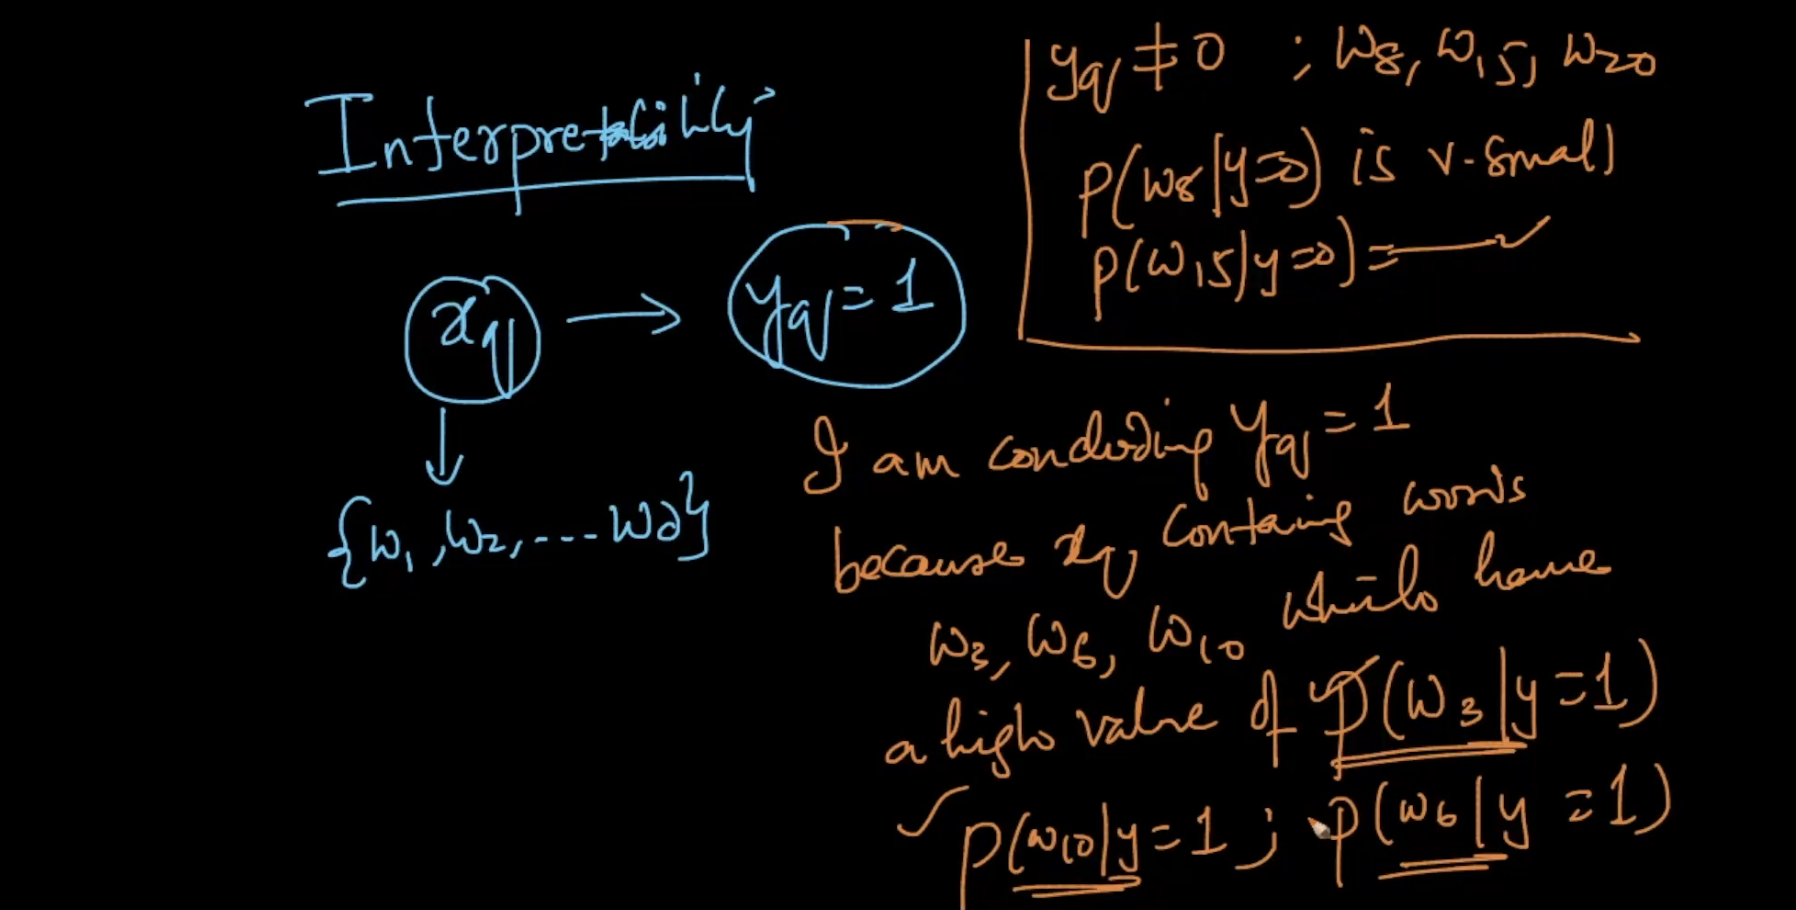 Interpretability
x_q → y_q = 1
{w₁, w₂, ... w_d}
y_q ≠ 0 ; w₈, w₁₅, w₂₀
P(w₈|y=0) is v-small
P(w₁₅|y=0) =
I am concluding y_q = 1
because x_q containing words
w₃, w₆, w₁₀ which have
a high value of P(w₃|y=1)
P(w₁₀|y=1 ; P(w₆|y=1)